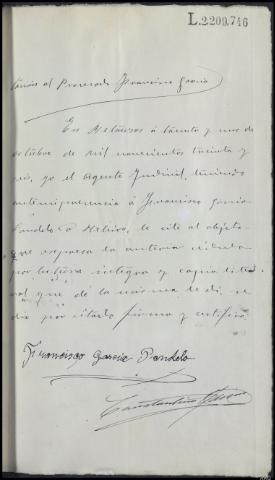 L.2209.746
al Procesado Francisco García
En Betanzos á treinta y uno de
Octubre de mil novecientos treinta y
seis, yo el Agente Judicial, teniendo
á mi presencia á Francisco García
Pandelo á, le cité al objeto
que expresa la anterior cédula
por lectura íntegra y copia lite
ral que de la misma le di, se
dió por citado firma y certifico.
Francisco García Pandelo